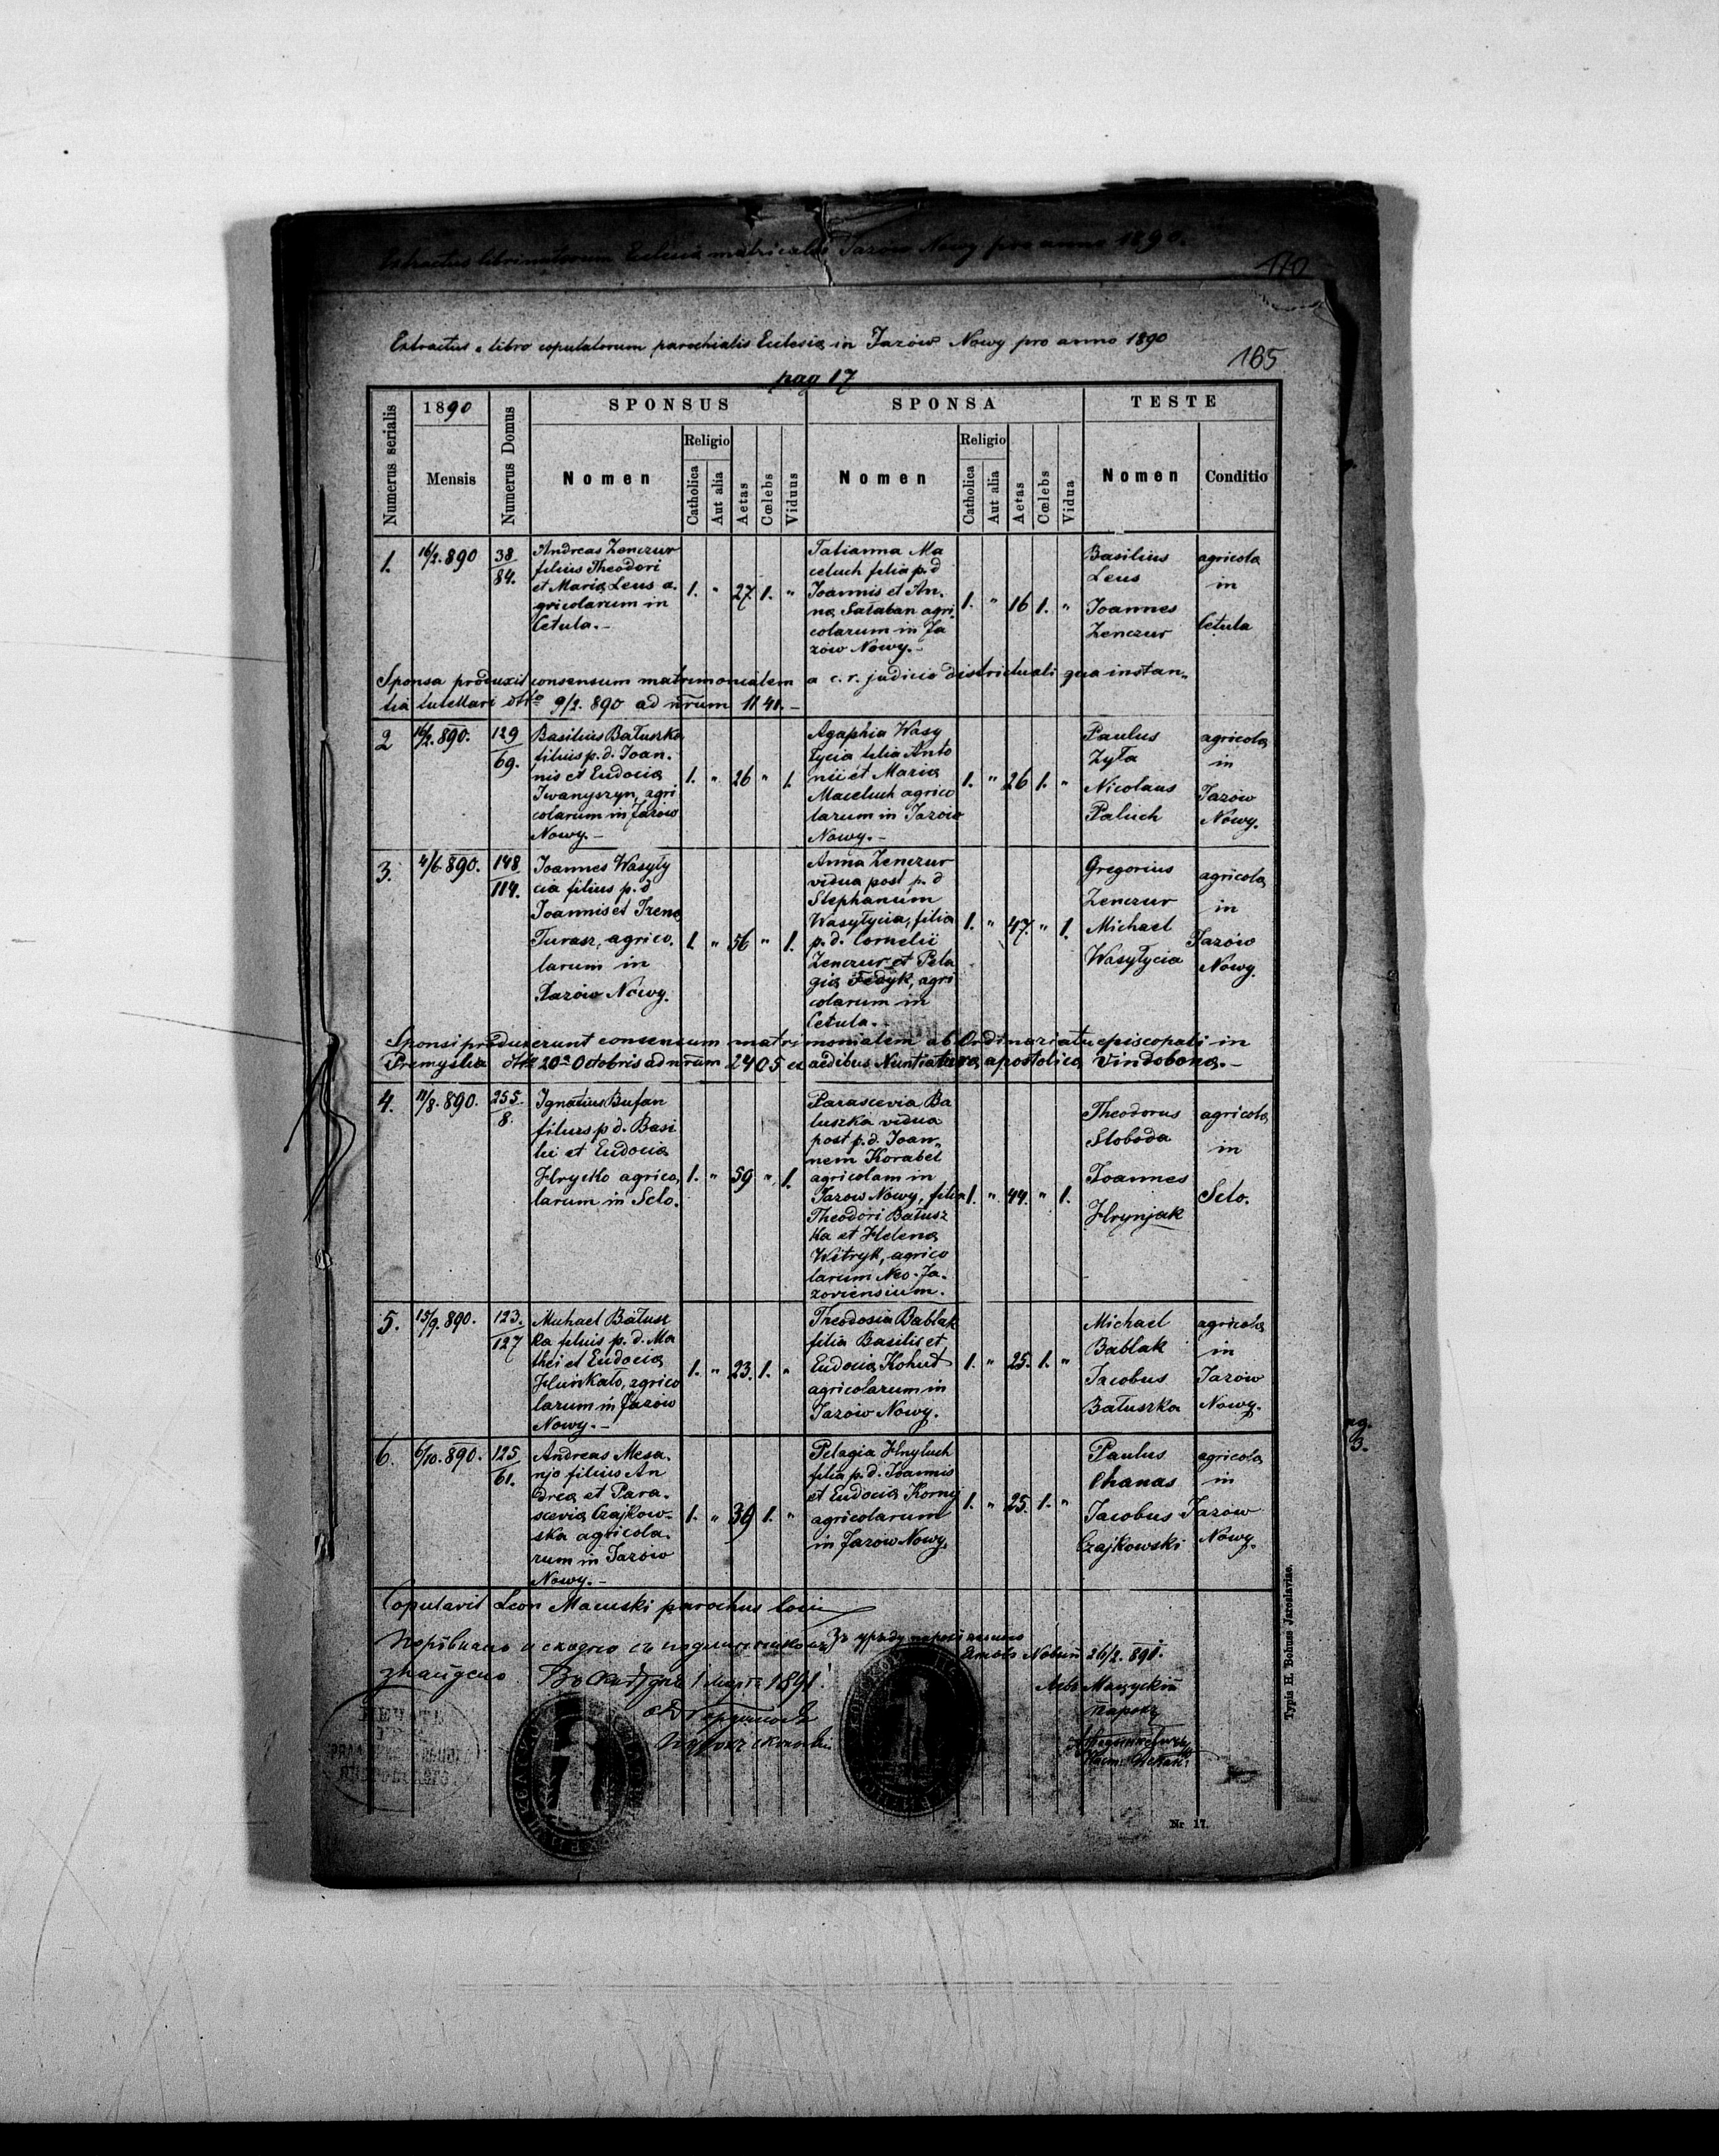 Extractus libri natorum Ecclesia matricalis Jazów Nowy pro anno 1890.
170
Extractus e libro copulatorum parochialis Eclesia in Jazów Nowy pro anno 1890
165
pag 17
Numerus serialis
1890
Mensis
Numerus Domus
SPONSUS
Nomen
Religio
Catholica
Aut alia
Aetas
Cœlebs
Viduus
SPONSA
Nomen
Religio
Catholica
Aut alia
Aetas
Cœlebs
Vidua
TESTE
Nomen
Conditio
1.
16/2. 890
38
84.
Andreas Zenczur
filius Theodori
et Maria Leus a.
gricolarum in
Cetula. -
1. " 27. 1. "
Tatianna Ma
celuch filia p. d
Joannis et An.
na Sałaban agri
colarum in Ja
zów Nowy. -
1. " 16 1. "
Basilius
Leus
Joannes
Zenczur
agricola
in
Cetula
Sponsa produxit consensum matrimonialem a c. r. judicio districtuali qua instan„
tia tutellari dtto 9/2. 890 ad nrum 1141. -
2
16/2. 890.
129
69.
Basilius Batuszka
filius p. d. Joan.
nis et Eudocia
Iwanyszyn, agri
colarum in Jazów
Nowy. -
1. " 26 " 1.
Agaphia Wasy
łycia filia Anto
nii et Maria
Maceluch agrico
larum in Jazów
Nowy. -
1. " 26 1. "
Paulus
Zyła
Nicolaus
Paluch
agricola
in
Jazów
Nowy.
3.
4/6. 890.
148
114.
Joannes Wasyły
cia filius p. d
Joannis et Irena
Turasz, agrico.
larum in
Jazów Nowy.
1. " 56 " 1.
Anna Zenczur
vidua post p. d
Stephanum
Wasyłycia, filia
p. d. Cornelii
Zenczur et Pela
gia Fedyk, agri
colarum in
Cetula. -
1. " 47. " 1.
Gregorius
Zenczur
Michael
Wasyłycia
agricola
in
Jazów
Nowy.
Sponsi produxerunt consensum matrimonialem ab Ordinariatu episcopali in
Premyslia dtto 20a Octobris ad nrum 2405 ex aedibus Nuntiatura apostolica Vindobona. -
4.
11/8. 890.
255.
8.
Ignatius Bufan
filius p d. Basi
lii et Eudocia
Hrycko agrico,
larum in Sclo.
1. " 59 " 1.
Parascevia Ba
luszka vidua
post p. d. Joan„
nem Korabel
agricolam in
Jazow Nowy, filia
Theodori Batusz
ka et Helena
Witryk, agrico
larum Neo-Ja.
zoviensium.
1. " 44. " 1.
Theodorus
Sloboda
Joannes
Hrynjak
agricola
in
Sclo.
5.
15/9. 890.
123.
127
Michael Batusz
ka filius p. d. Ma
thei et Eudocia
agrico
larum in Jazow
Nowy. -
1. " 23. 1. "
Theodosia Bablak
filia Basilii et
Eudocia Kohut
agricolarum in
Jazów Nowy.
1. " 25. 1. "
Michael
Bablak
Jacobus
Batuszka
agricola
in
Jazów
Nowy.
6.
6/10. 890.
125
61.
Andreas Mesa.
njo filius An
drea et Para.
scevia Czajkow-
ska agricola.
rum in Jazów
Nowy. -
1. " 39 1. "
Pelagia Hnyluch
filia p. d. Joannis
et Eudocia Kornij
agricolarum
in Jazow Nowy.
1. " 25. 1. "
Paulus
Chanas
Jacobus
Czajkowski
agricola
in
Jazow
Nowy.
Copulavit Leon Macuski parochus loci
26/2. 891.
1891
Typis H. Bohuss Jaroslaviae.
Nr 17.